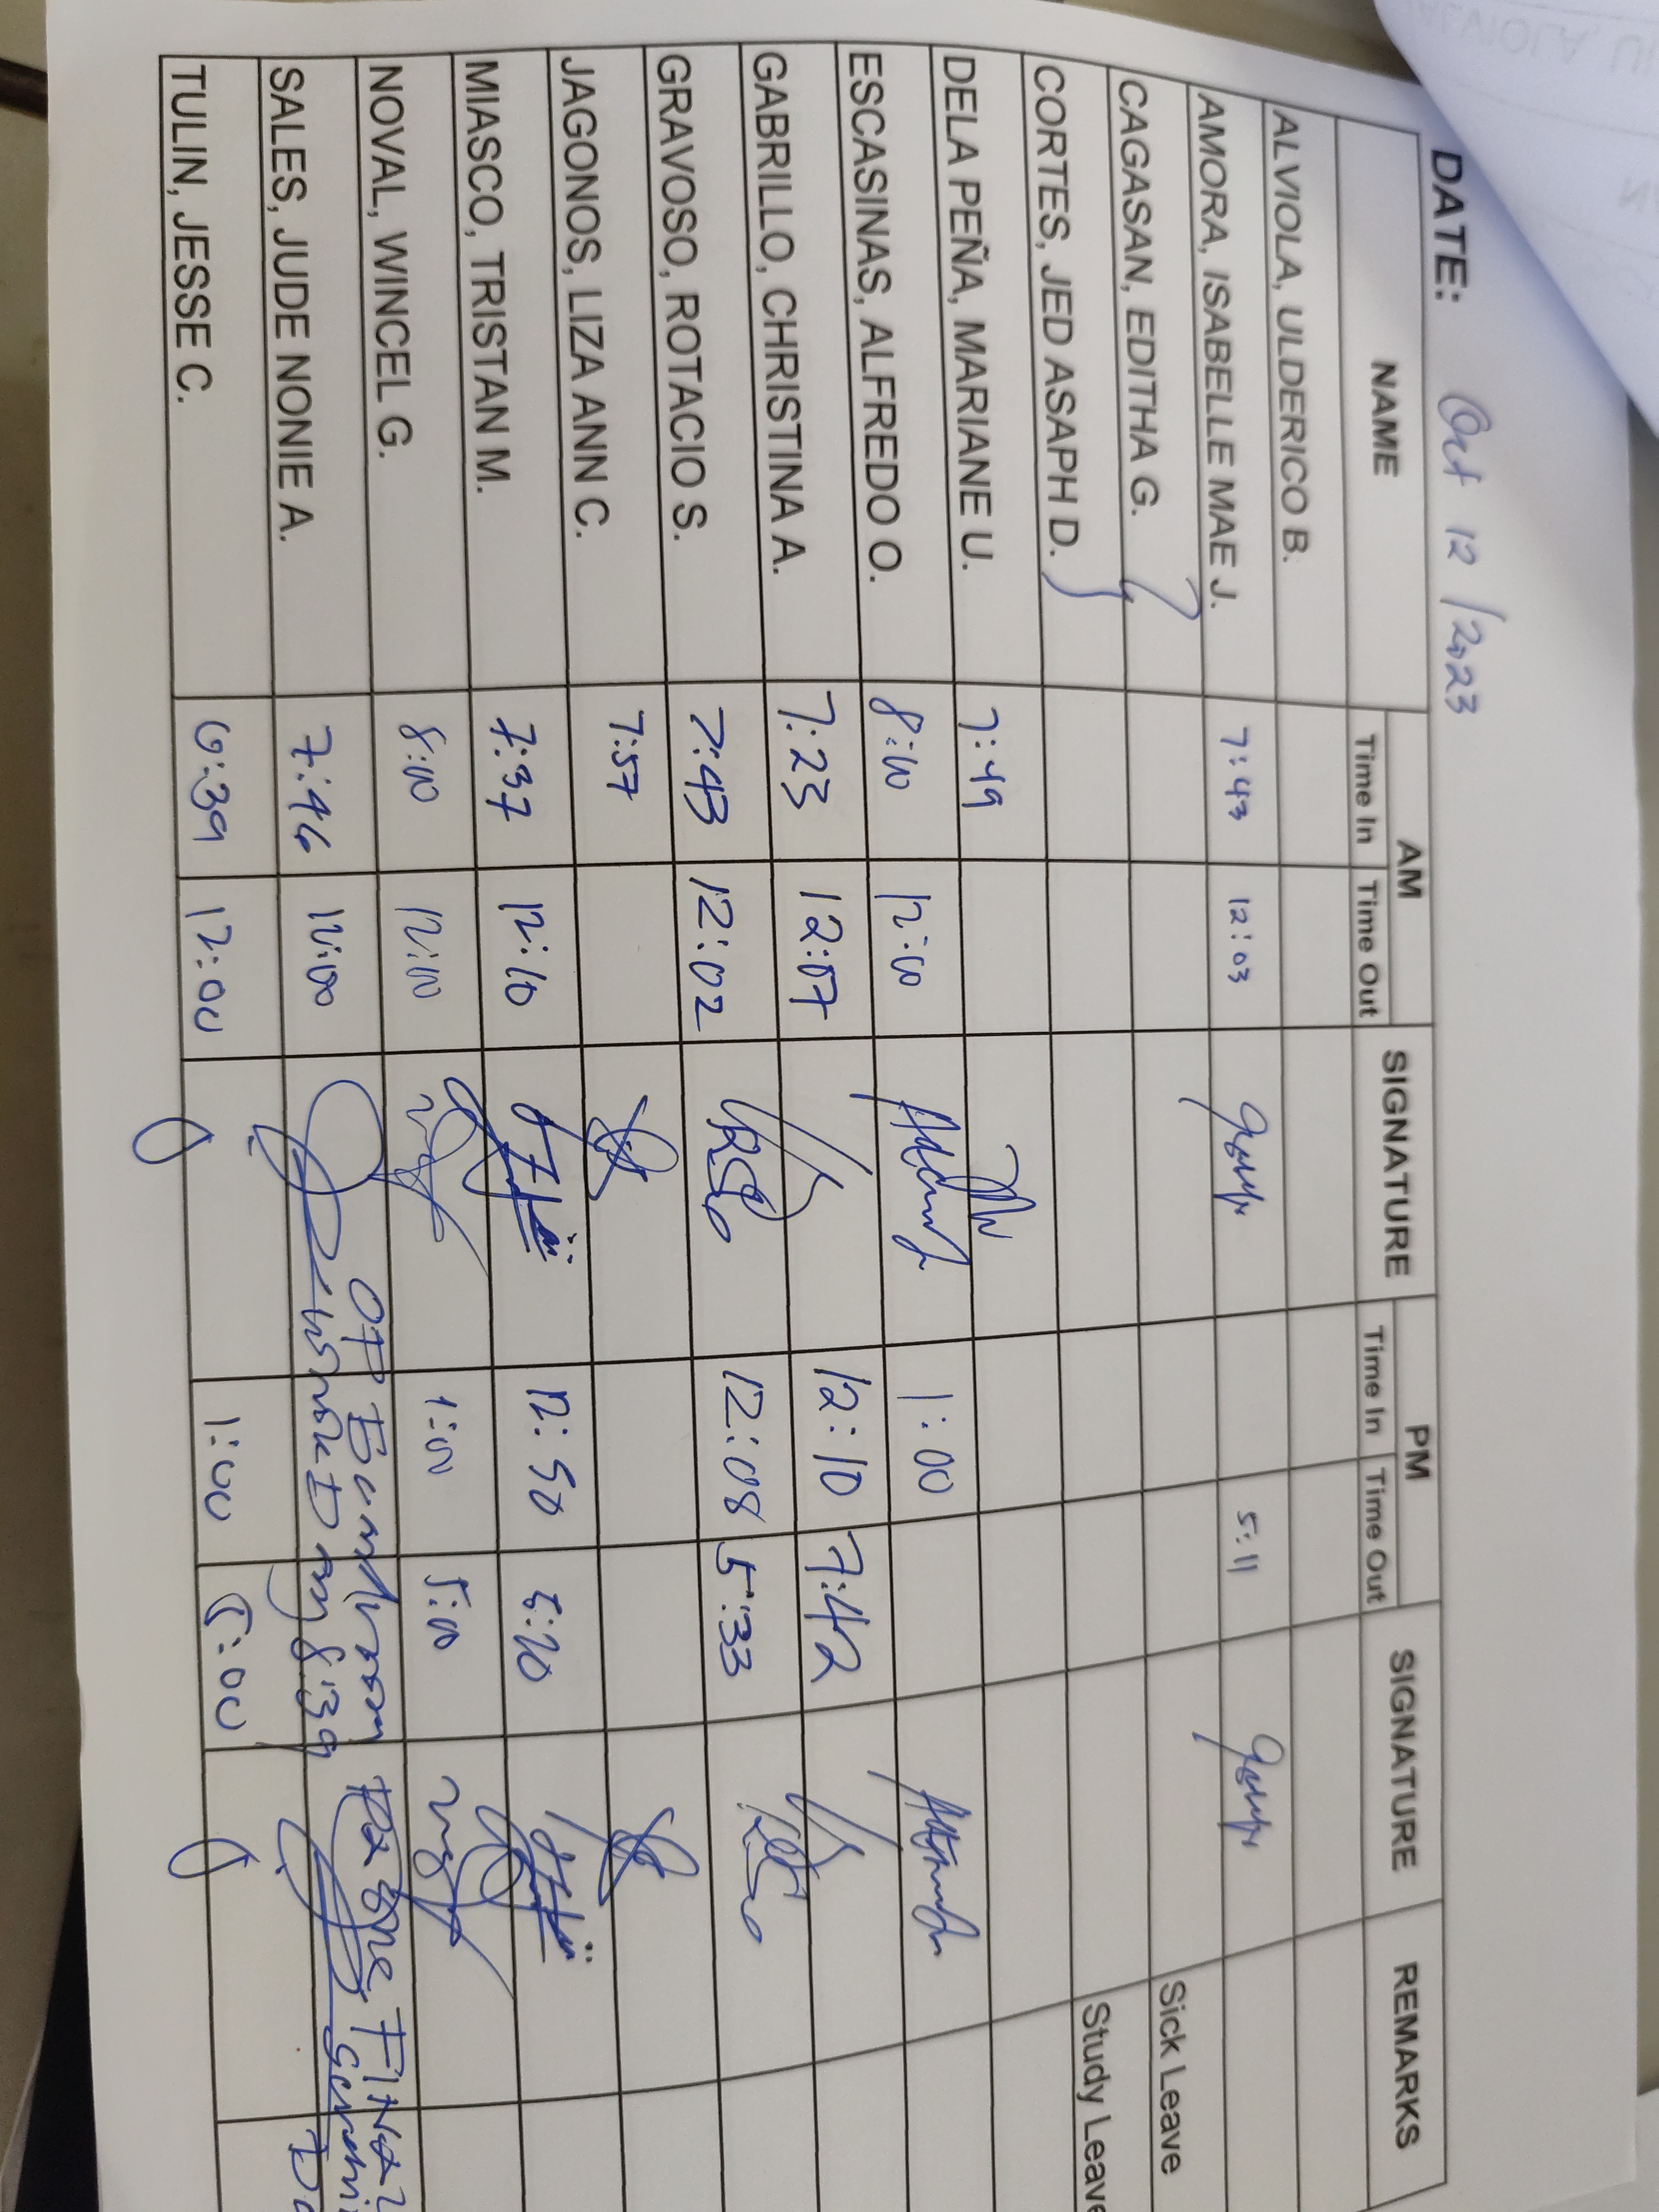 DATE: Oct 12 /2023
NAME AM SIGNATURE PM SIGNATURE REMARKS
Time In Time Out Time In Time Out
ALVIOLA, ULDERICO B.
AMORA, ISABELLE MAE J. 7:43 12:03 5:11
CAGASAN, EDITHA G. Sick Leave
CORTES, JED ASAPH D. Study Leave
DELA PEÑA, MARIANE U. 7:49
ESCASINAS, ALFREDO O. 8:00 12:00 1:00
GABRILLO, CHRISTINA A. 7:23 12:07 12:10 7:42
GRAVOSO, ROTACIO S. 7:43 12:02 12:08 5:33
JAGONOS, LIZA ANN C. 7:57
MIASCO, TRISTAN M. 7:37 12:10 12:50 5:20
NOVAL, WINCEL G. 8:00 12:00 1:00 5:00
OP Boardroom
SALES, JUDE NONIE A. 7:46 12:00 8:39
TULIN, JESSE C. 6:39 12:00 1:00